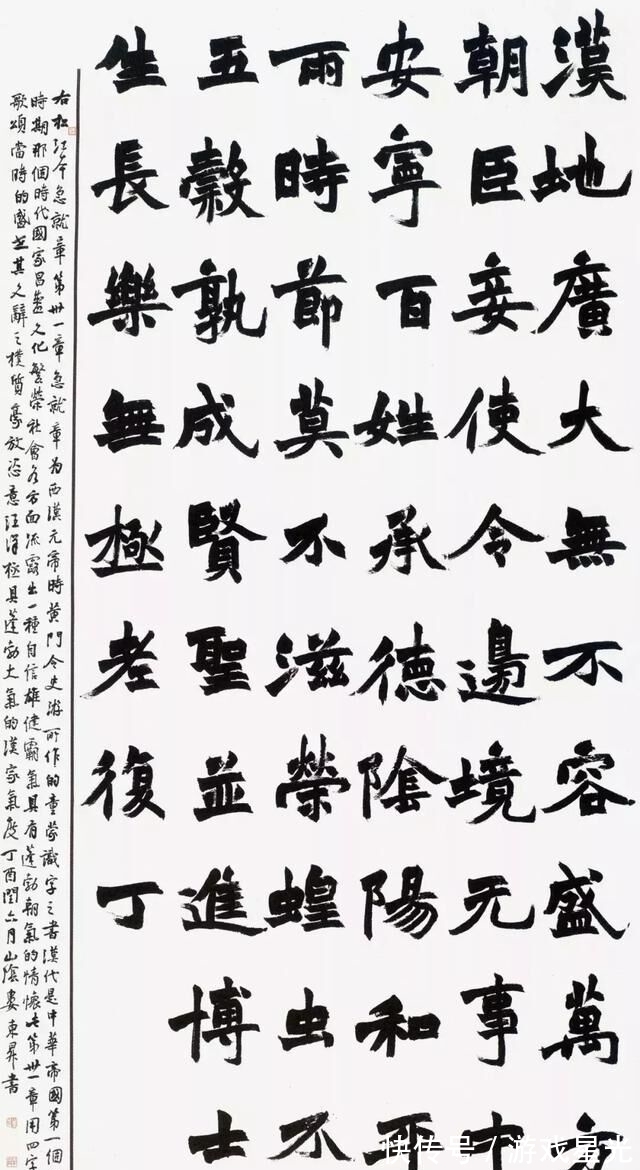 漢地廣大無不容盛萬
朝臣妾使令邊境无事中
安寧百姓承德陰陽和
雨時節莫不滋榮蝗虫不
五穀孰成賢聖並進博士
生長樂無極老復丁
右松江本急就章第卅一章急就章为西漢元帝時黄門令史游所作的童蒙識字之書漢代是中華帝國第一個
時期那個時代國家昌盛文化繁榮社會各方面流露出一種自信雄健霸氣具有蓬勃朝氣的情懷此第卅一章用四字
歌頌當時的盛世其文辭之樸質豪放恣意汪洋極具蓬勃大氣的漢家氣度丁酉閏六月山陰婁東昇書
快传号/游戏星光